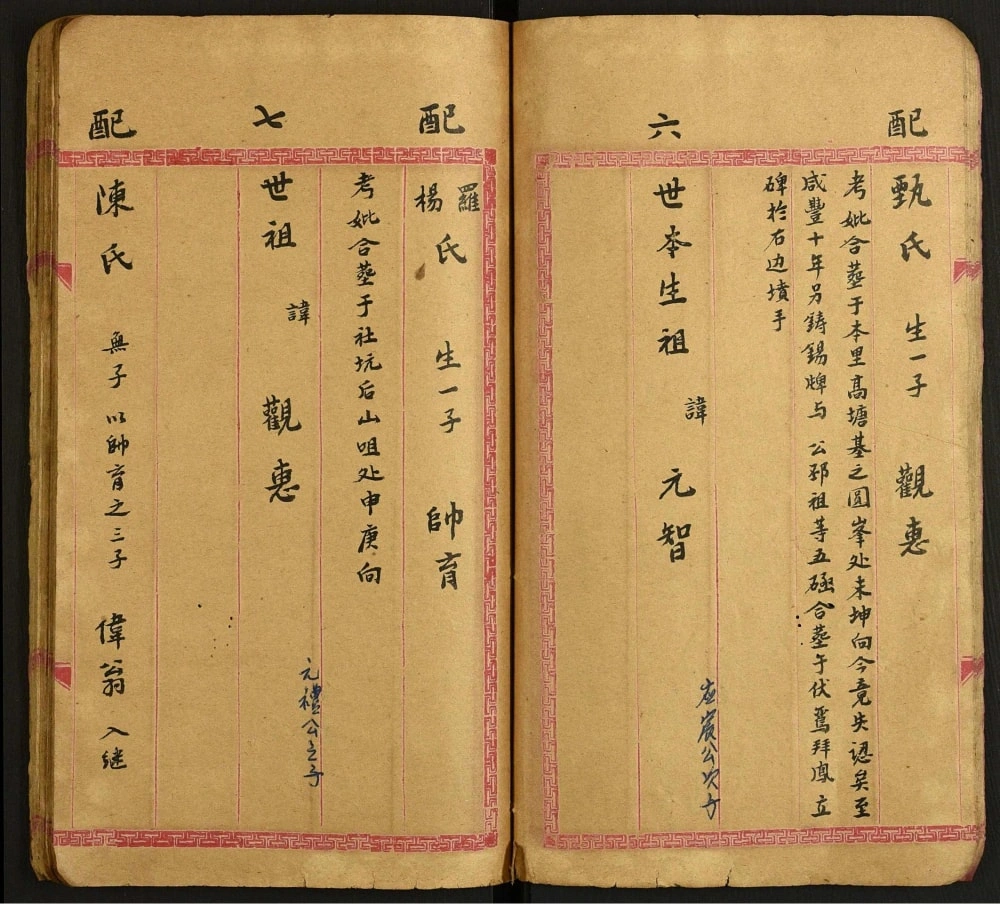 配 甄氏 生一子 觀惠
考妣合塟于本里髙塘基之圓峯处未坤向今竟失認矣至
咸豐十年另鋳錫牌与 公郛祖等五𥔲合塟于伏鴌拜鳳立
碑於右边墳手
六世本生祖 諱 元智
應宸公次子
配 羅楊氏 生一子 帥育
考妣合塟于社坑后山咀处申庚向
七世祖 諱 觀惠
元禮公之子
配 陳氏 無子 以帥育之三子 偉翁 入继